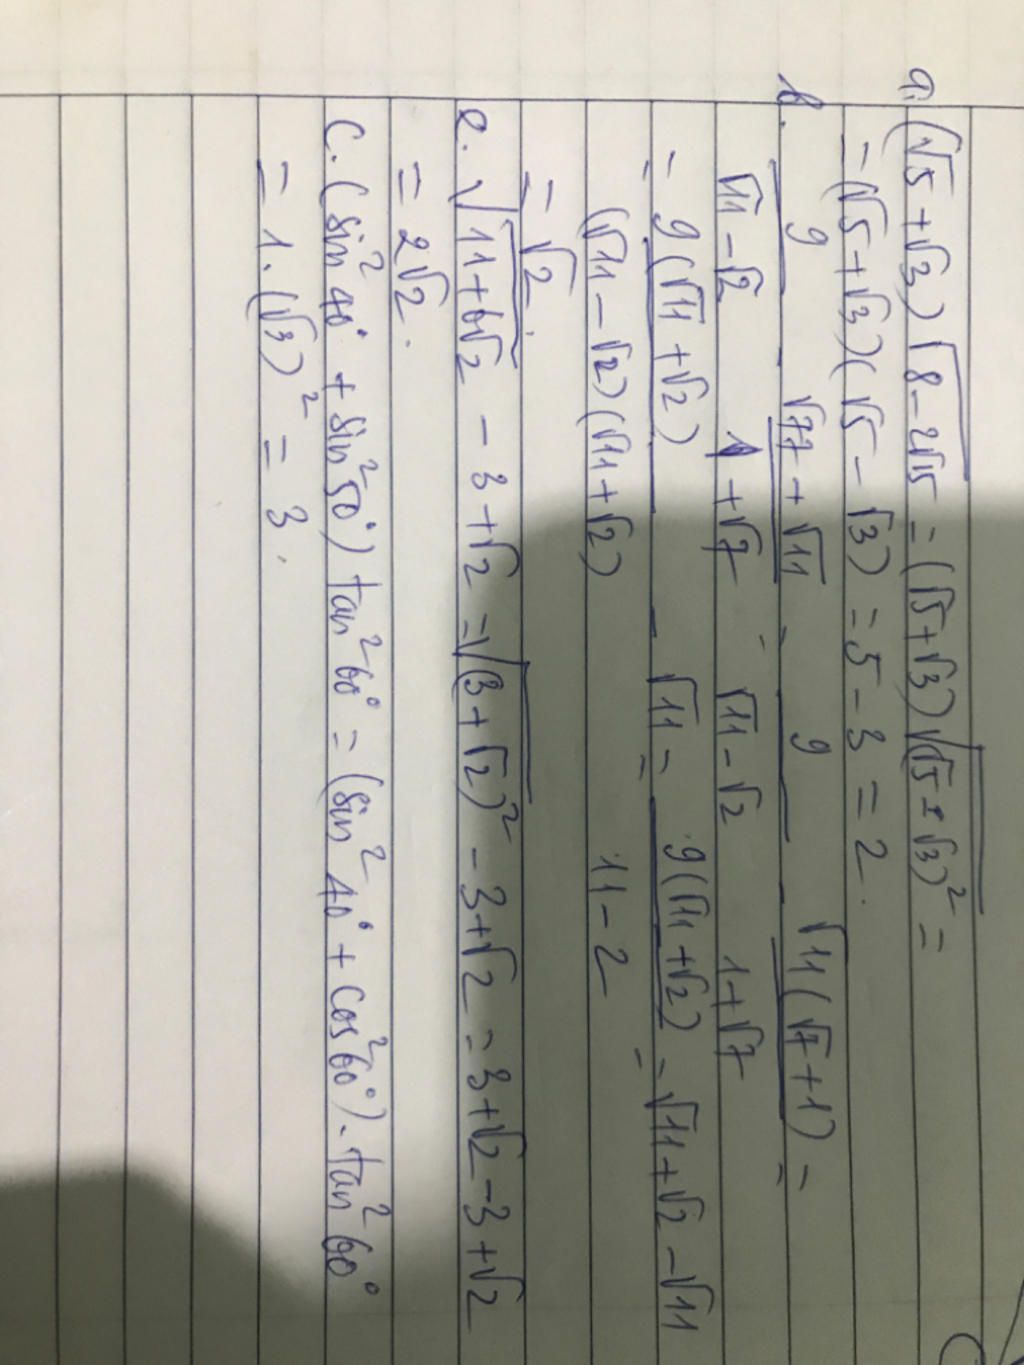 a. (√5 + √3) √(8 - 2√15) = (√5 + √3) √(√5 - √3)² =
= (√5 + √3)(√5 - √3) = 5 - 3 = 2.
b. 9/(√11 - √2) - (√77 + √11)/(1 + √7) = 9/(√11 - √2) - √11(√7 + 1)/(1 + √7) =
= 9(√11 + √2)/((√11 - √2)(√11 + √2)) - √11 = 9(√11 + √2)/(11 - 2) - √11 + √2 - √11
= √2.
e. √(11 + 6√2) - 3 + √2 = √(3 + √2)² - 3 + √2 = 3 + √2 - 3 + √2
= 2√2.
c. (sin²40° + sin²50°) tan²60° = (sin²40° + cos²60°). tan²60°
= 1.(√3)² = 3.